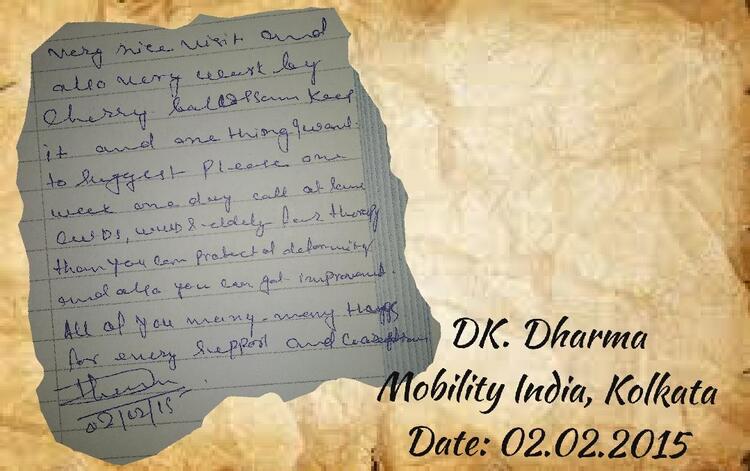 very nice visit and
also very much by
Cherry
it and one thing I want
to suggest Please one
week one day call at
CWDS, & eldely for therapy
than you can protect of deformity
and also you can get improvement.
All of you many-many thanks
for every support and
02/02/15
DK. Dharma
Mobility India, Kolkata
Date: 02.02.2015